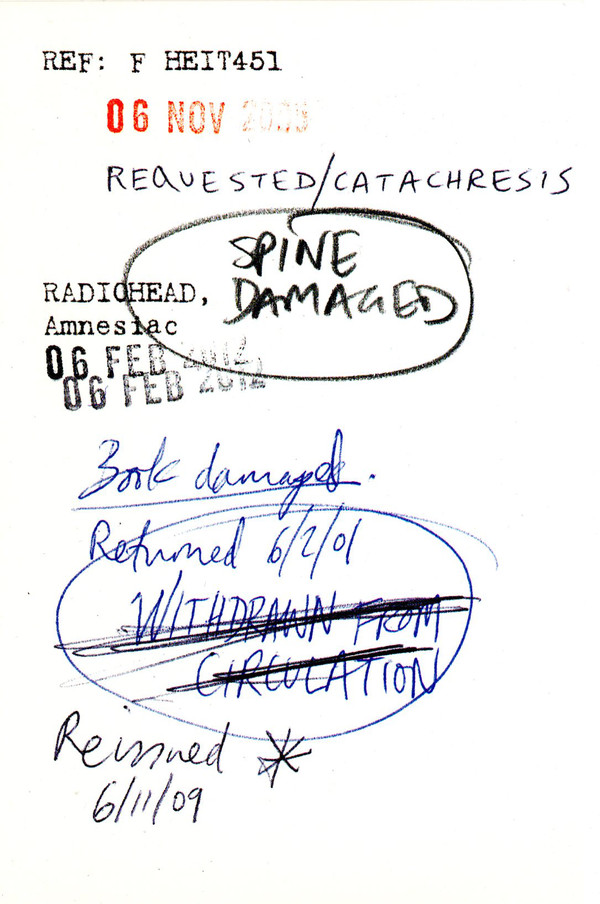 REF: F HEIT451
06 NOV 2009
REQUESTED/CATACHRESIS
SPINE
DAMAGED
RADIOHEAD,
Amnesiac
06 FEB 2012
06 FEB 2012
Book damaged.
Returned 6/2/01
WITHDRAWN FROM
CIRCULATION
Reissued *
6/11/09